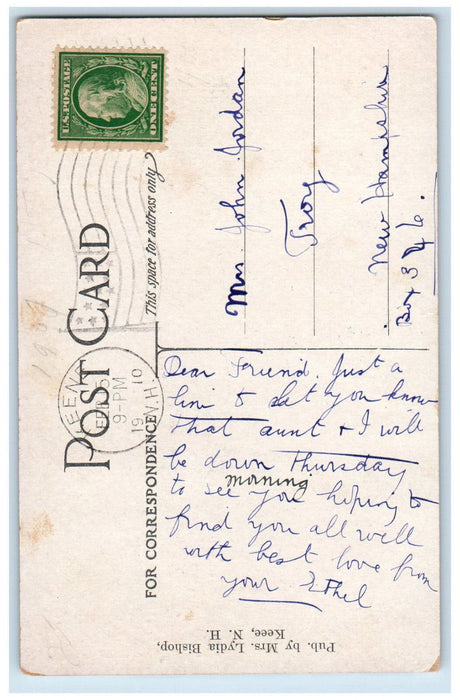 U.S. POSTAGE
ONE CENT
POST CARD
This space for address only
KEENE
9-PM
19 10
N.H.
Mrs. John Jordan
Troy
New Hampshire
Box 346.
FOR CORRESPONDENCE
Dear Friend. Just a
line to let you know
that aunt + I will
be down Thursday
morning
to see you hoping to
find you all well
with best love from
your Ethel
Pub. by Mrs. Lydia Bishop,
Keee, N. H.